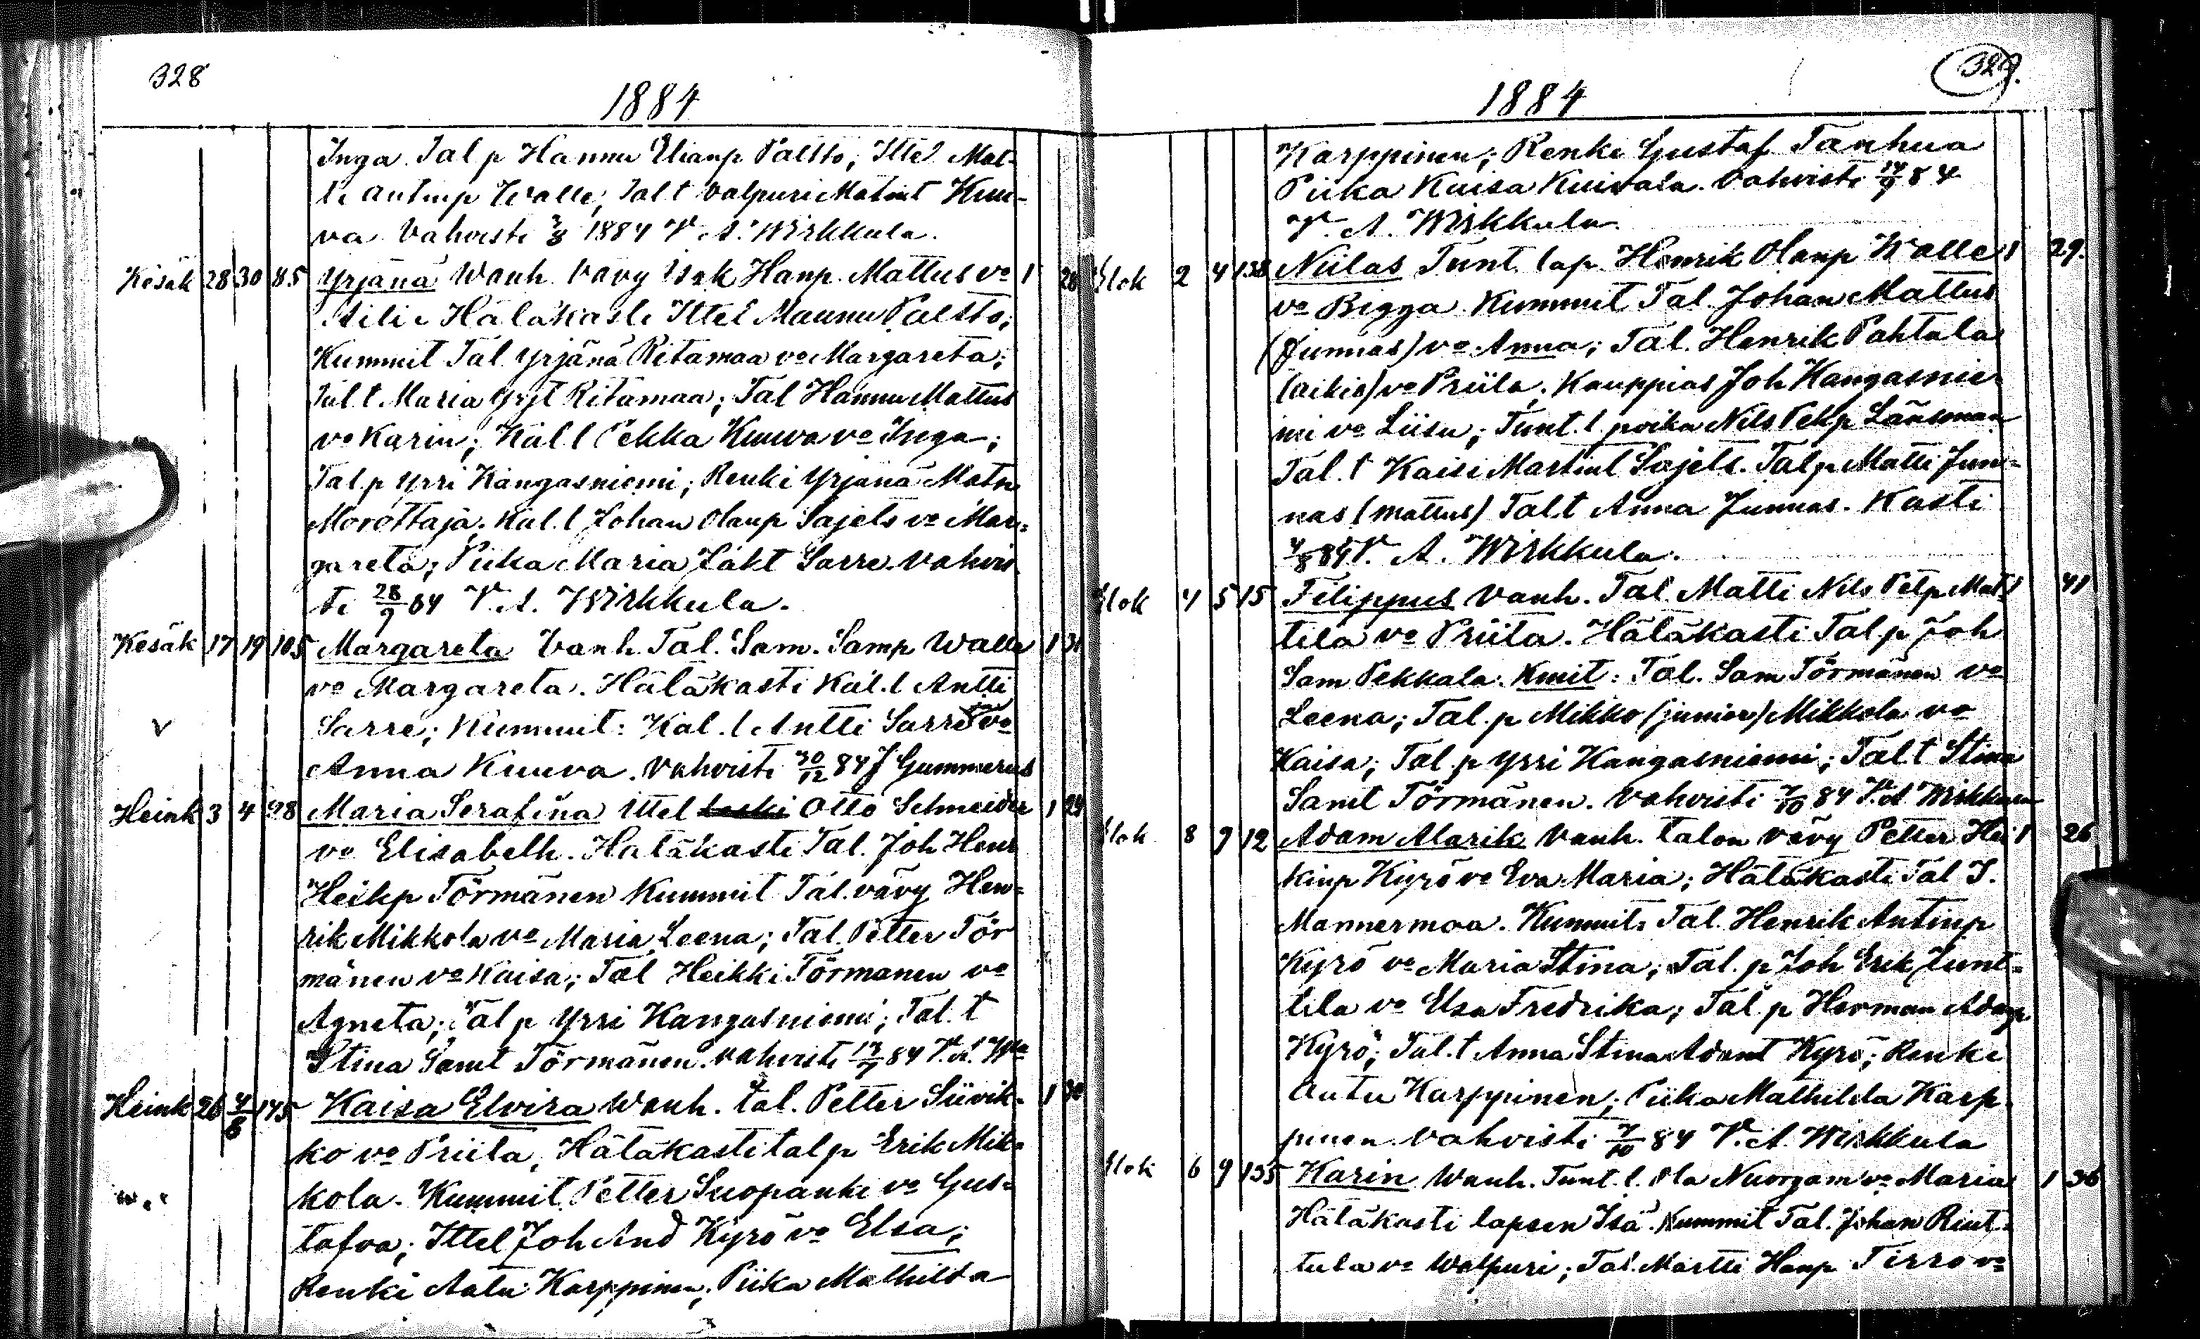 328
1884
Inga. Tal. p Hannu Elianp Paltto; Ittel Mat-
ti Antinp Walle, Tal t Valpuri Matint Kuu-
va Vahvisti 3/8 1884 V. A. Wirkkula.
Kesäk 28 30 85 Yrjänä Wanh. Vävy Isak Hanp. Mattus vo 1 28
Hätäkasti Ittel Maunu Paltto;
Kummit Tal. Yrjänä Ritamaa vo Margareta;
Tal. t. Maria Yrjt Ritamaa; Tal Hannu Mattus
vo Karin; Kal. l Pekka Kuuva vo Inga;
Tal. p Yrri Kangasniemi; Renki Yrjänä Matp
Morottaja. Kal. l Johan Olanp Sajets vo Mar-
gareta; Piika Maria Jakt Sarre. Vahvis-
ti 28/9 84 V. A. Wirkkula.
Kesäk 17 19 105 Margareta Vanh. Tal. Sam. Samp Walle 1 31
vo Margareta. Hätäkasti Kal. l Antti
v Sarre; Kummit: Kal. l Antti Sarre vo
Anna Kuuva. Vahvisti 30/12 84 J Gummerus
Heink 3 4 98 Maria Serafina Ittel Otto Schneider 1 24
vo Elisabeth. Hätäkasti Tal. Joh Henr
Heikp Törmänen Kummit Tal. vävy Hen-
rik Mikkola vo Maria Leena; Tal. Petter Tör
mänen vo Kaisa; Tal Heikki Törmänen vo
Agneta; Tal p Yrri Kangasniemi; Tal. t
Stina Samt Törmänen. Vahvisti 84 V. A. Wla
Heink 26 4/8 175 Kaisa Elvira Wanh. tal. Petter Siivik- 1
ko vo Priita, Hätäkasti tal p Erik Mik-
kola. Kummit Petter Suopanki vo Gus-
tafva; Ittel Joh And Kyrö vo Elsa;
Renki Aatu Karppinen; Piika Mathilda
329.
1884
Karppinen; Renki Gustaf Tanhua
Piika Kaisa Kuivala. Vahvisti 84
V. A. Wirkkula.
Elok 2 4 138 Niilas Tunt. lap. Henrik Olanp Walle 1 29.
vo Bigga. Kummit Tal. Johan Mattus
(Junnas) vo Anna; Tal. Henrik Pahtala
(aikio) vo Priita; Kauppias Joh Kangasnie-
mi vo Liisa; Tunt. l poika Nils Petp Länsman
Tal. t Kaisi Martint Sajets. Tal p Matti Jun-
nas (Mattus) Tal. t Anna Junnas. Kasti
4/8 84 V. A. Wirkkula.
Elok 4 5 15 Filippus Vanh. Tal. Matti Nils Petp Mat- 1 41
tila vo Priita. Hätäkasti Tal p Joh
Sam Pekkala. Kmit: Tal. Sam Törmänen vo
Leena; Tal. p Mikko (junior) Mikkola vo
Kaisa; Tal. p Yrri Kangasniemi; Tal. t Stina
Samt Törmänen. Vahvisti 7/10 84 V. A. Wirkkula
Elok 8 9 12 Adam Alarik Vanh. talon vävy Petter Hei 1 26
kinp Kyrö vo Eva Maria; Hätäkasti Tal J.
Mannermaa. Kummit Tal. Henrik Antinp
Kyrö vo Maria Stina; Tal. p Joh Erik Junt-
tila vo Elsa Fredrika; Tal p Herman Adamp
Kyrö; Tal. t Anna Stina Adamt Kyrö; Renki
Aatu Karppinen; Piika Mathilda Karp-
pinen vahvisti 7/10 84 V. A. Wirkkula
Elok 6 9 155 Karin Wanh. Tunt. l. Ola Nuorgam vo Maria 1 36
Hätäkasti lapsen Isä. Kummit Tal. Johan Riut-
tula vo Walpuri; Tal. Martti Hanp Tirro vo